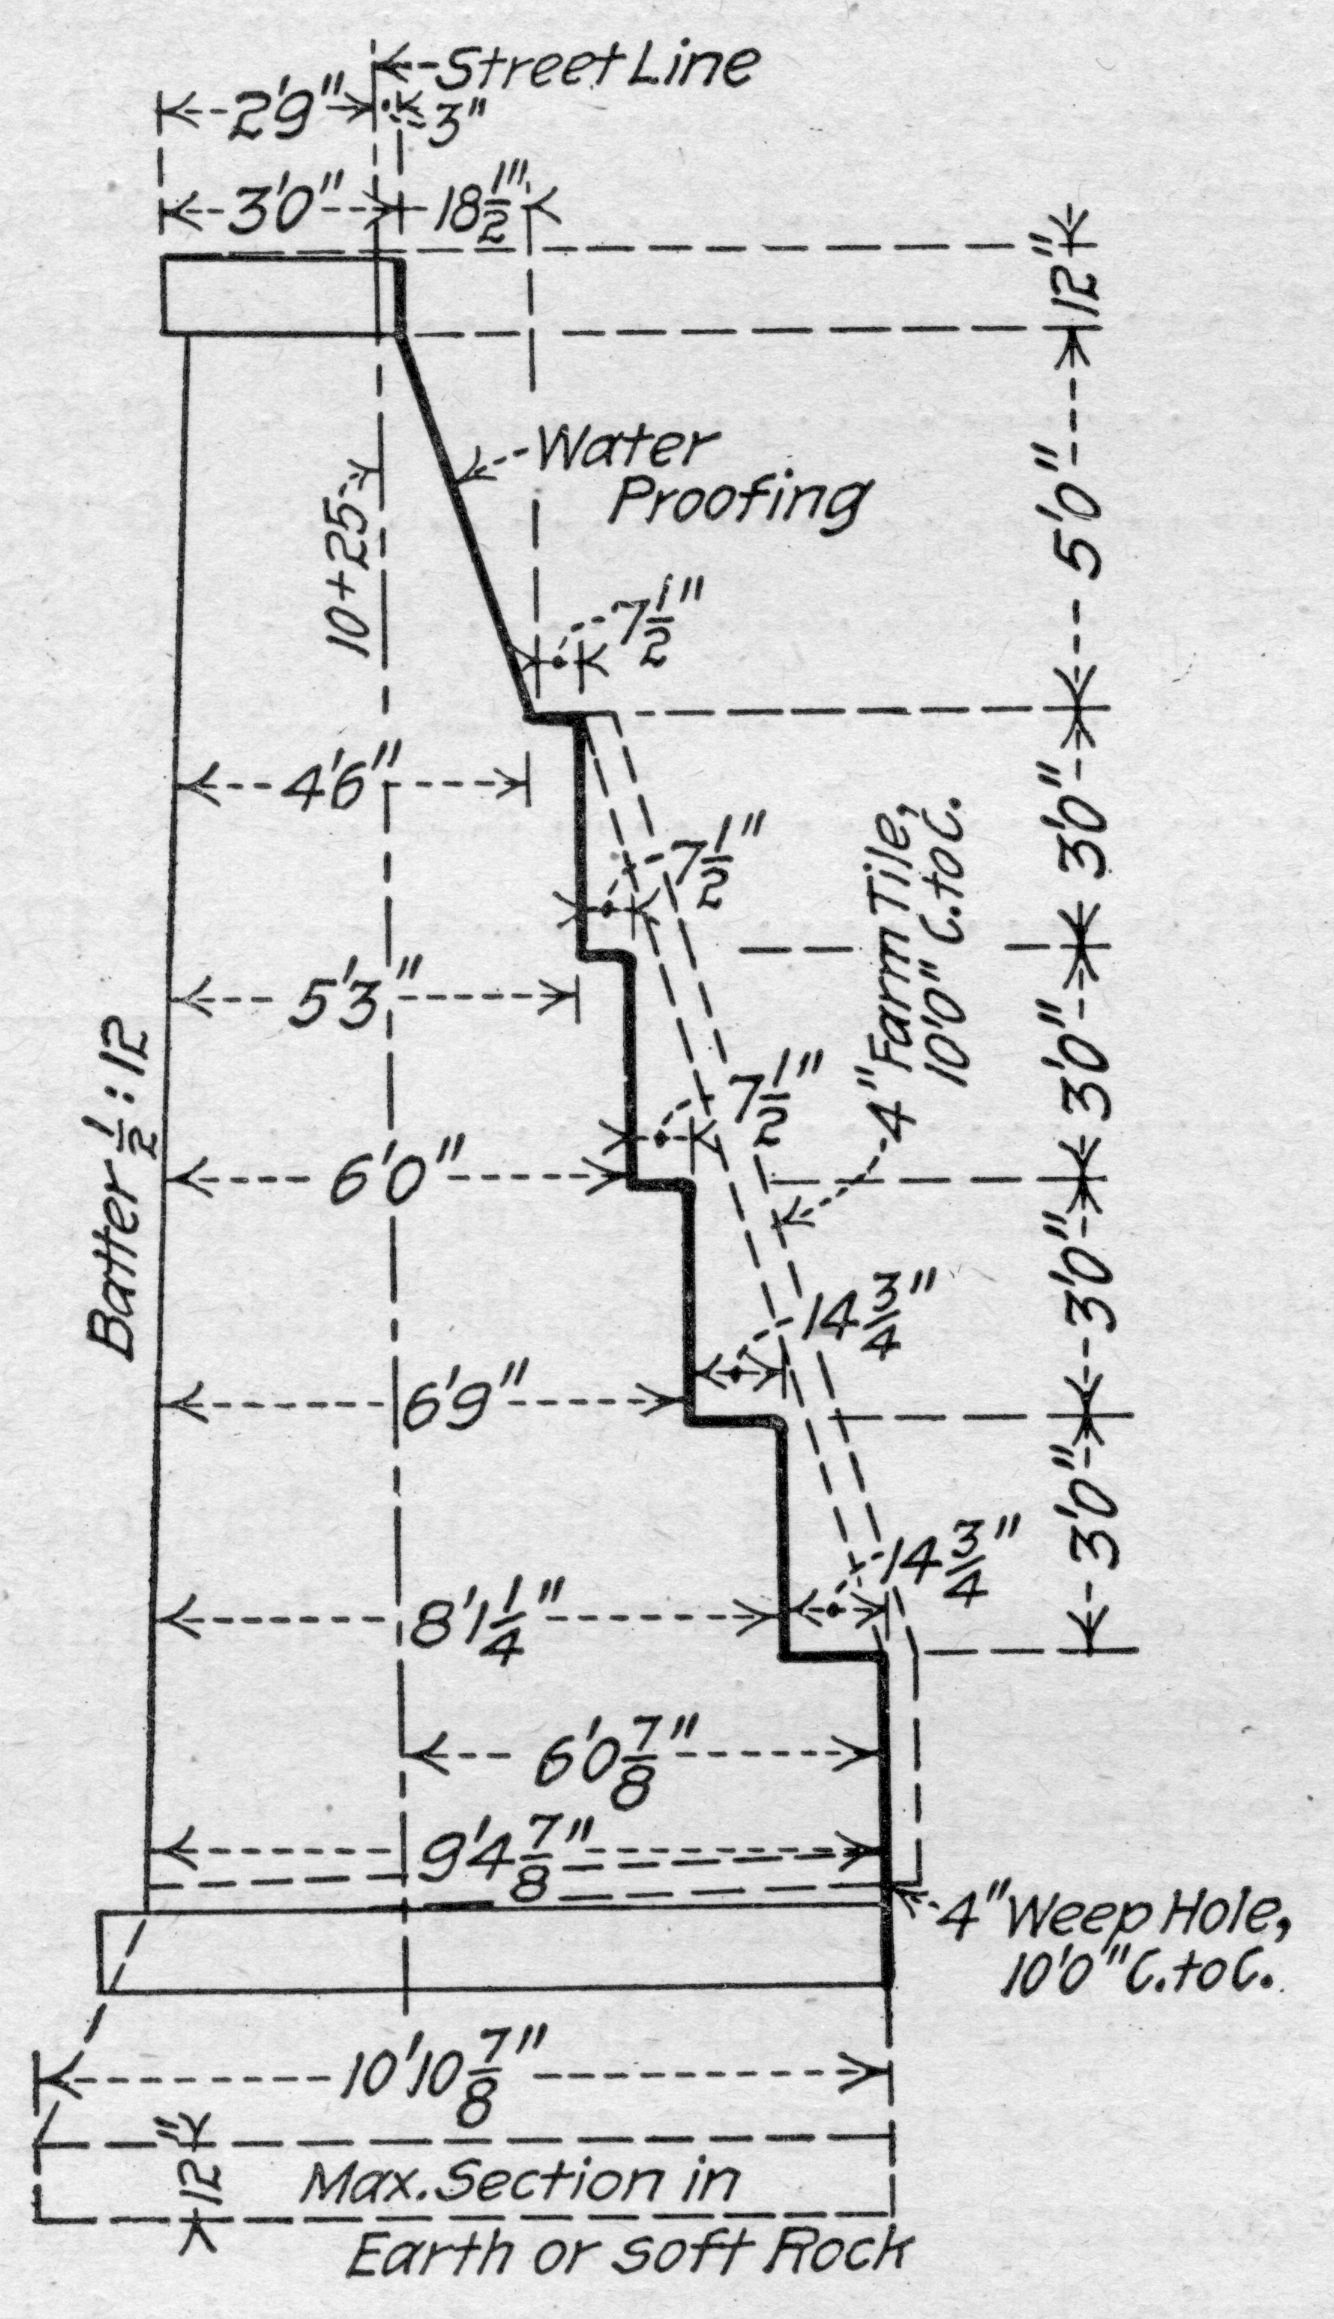 Street Line
2'9"
3"
3'0"
18 1/2"
12"
5'0"
Water
Proofing
10+25
7 1/2"
4'6"
3'0"
7 1/2"
4" Farm Tile,
10'0" C. to C.
5'3"
3'0"
Batter 1/2 : 12
7 1/2"
6'0"
3'0"
14 3/4"
6'9"
3'0"
14 3/4"
8'1 1/4"
6'0 7/8"
9'4 7/8"
4" Weep Hole,
10'0" C. to C.
10'10 7/8"
12"
Max. Section in
Earth or soft Rock